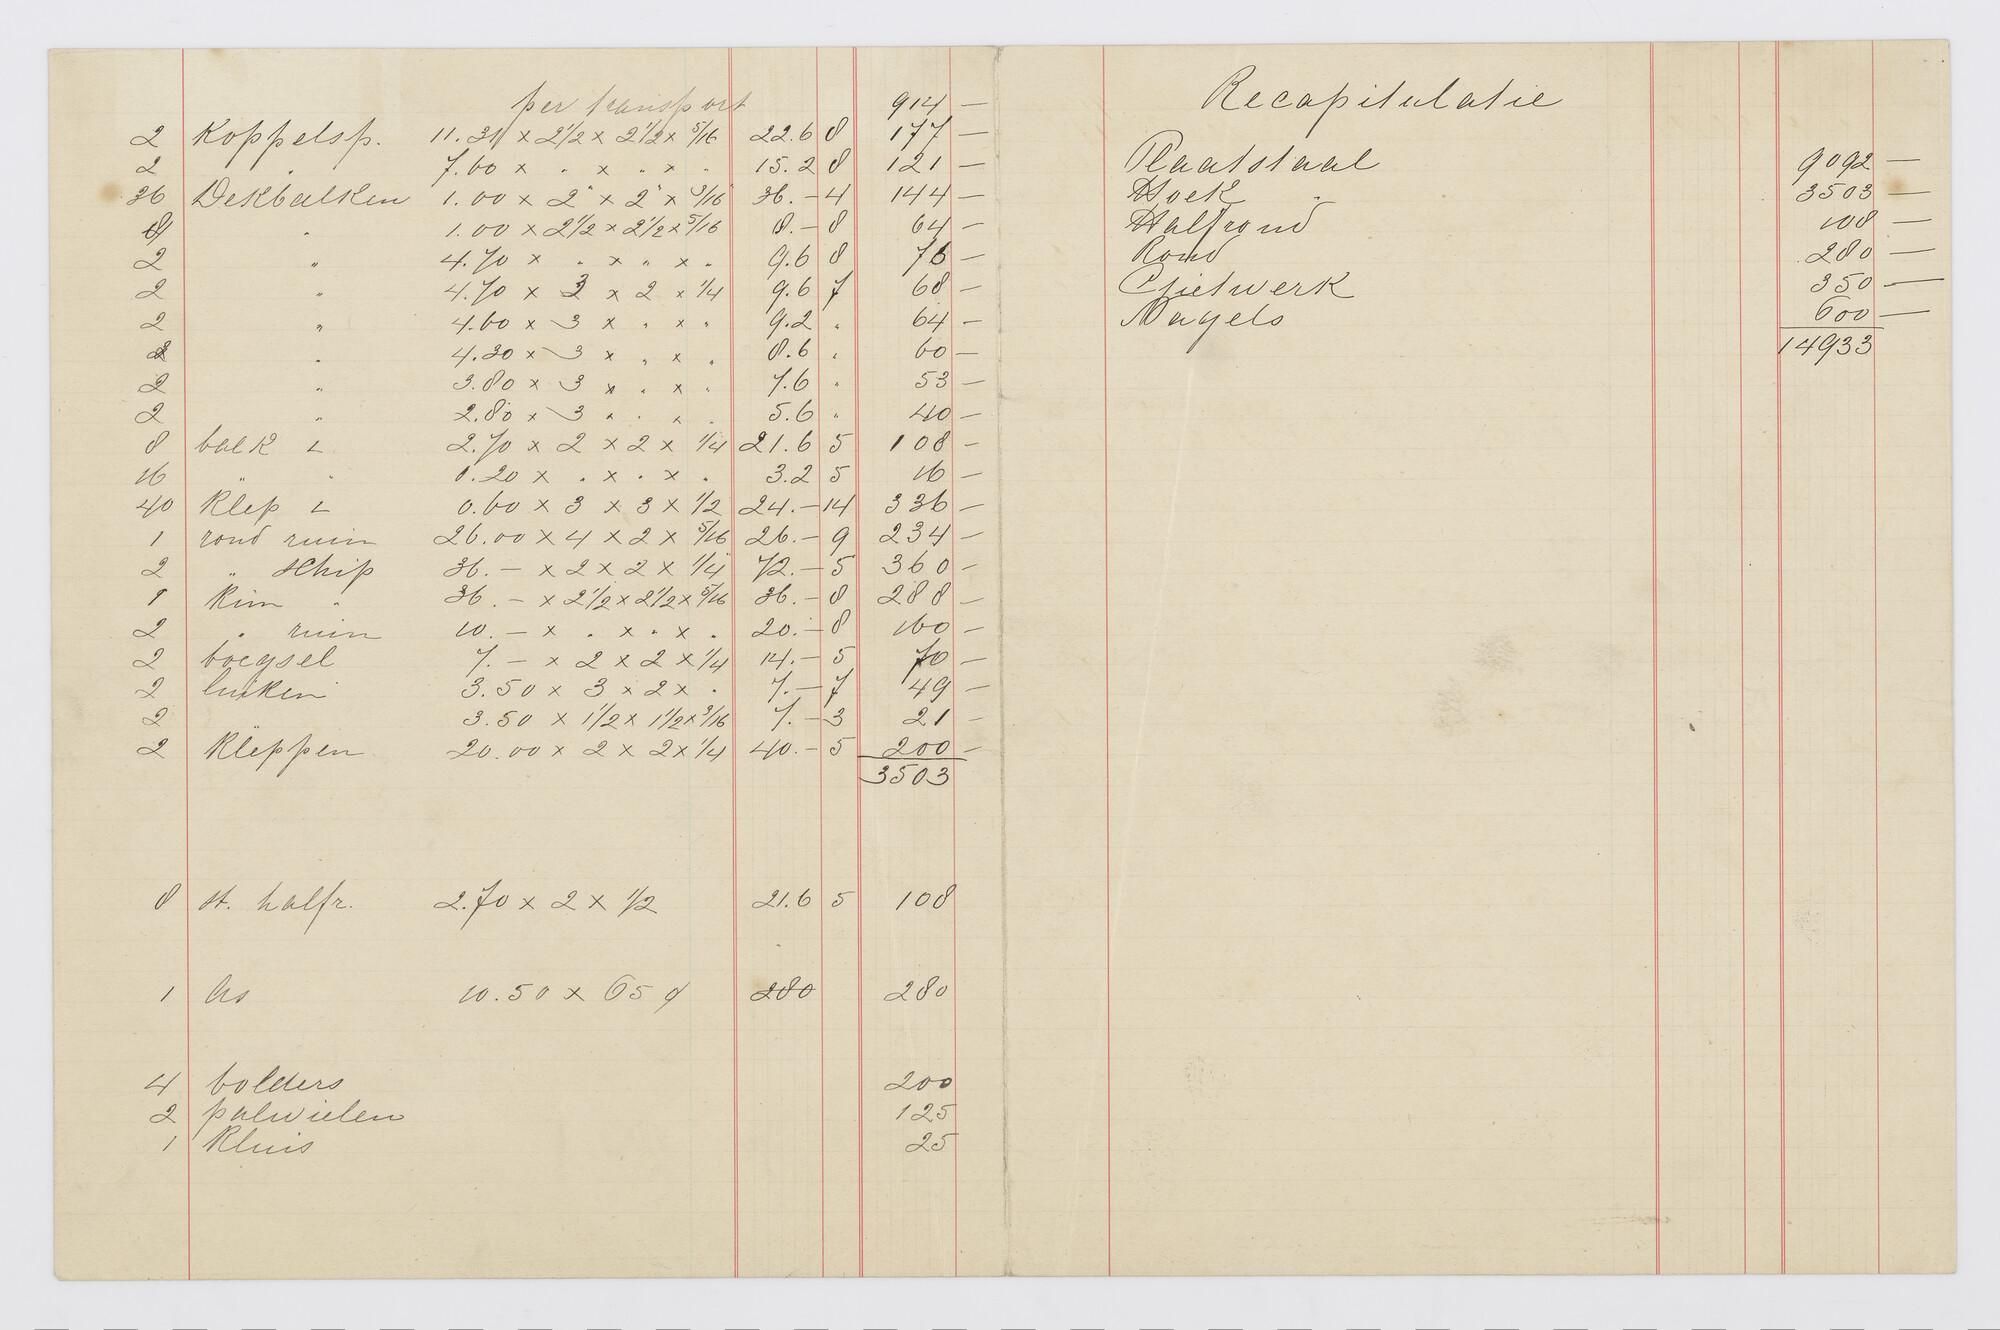 per transport 914 —
2 Koppelsp. 11.31 × 2½ × 2½ × 5/16 22.6 8 177 —
2 " 7.60 × " × " × " 15.2 8 121 —
36 Dekbalken 1.00 × 2" × 2" × 3/16" 36.— 4 144 —
8 " 1.00 × 2½ × 2½ × 5/16 8.— 8 64 —
2 " 4.70 × " × " × " 9.6 8 76 —
2 " 4.70 × 3 × 2 × ¼ 9.6 7 68 —
2 " 4.60 × 3 × " × " 9.2 " 64 —
2 " 4.30 × 3 × " × " 8.6 " 60 —
2 " 3.80 × 3 × " × " 7.6 " 53 —
2 " 2.80 × 3 " " × " 5.6 " 40 —
8 balk L 2.70 × 2 × 2 × ¼ 21.6 5 108 —
16 " " 0.20 × " × " × " 3.2 5 16 —
40 Klep L 0.60 × 3 × 3 × ½ 24.— 14 336 —
1 rond ruim 26.00 × 4 × 2 × 5/16 26.— 9 234 —
2 " schip 36.— × 2 × 2 × ¼" 72.— 5 360 —
1 Kim " 36.— × 2½ × 2½ × 5/16 36.— 8 288 —
2 " ruim 10.— × " × " × " 20.— 8 160 —
2 boegsel 7.— × 2 × 2 × ¼ 14.— 5 70 —
2 luiken 3.50 × 3 × 2 × " 7.— 7 49 —
2 3.50 × 1½ × 1½ × 3/16 7.— 3 21 —
2 Kleppen 20.00 × 2 × 2 × ¼ 40.— 5 200 —
3503
8 st. halfr. 2.70 × 2 × ½ 21.6 5 108
1 As 10.50 × 65 ¢ 280 280
4 bolders 200
2 palwielen 125
1 Kluis 25
Recapitulatie
Plaatstaal 9092 —
Hoek " 3503 —
Halfrond 108 —
Rond 280 —
Gietwerk 350 —
Nagels 600 —
14933